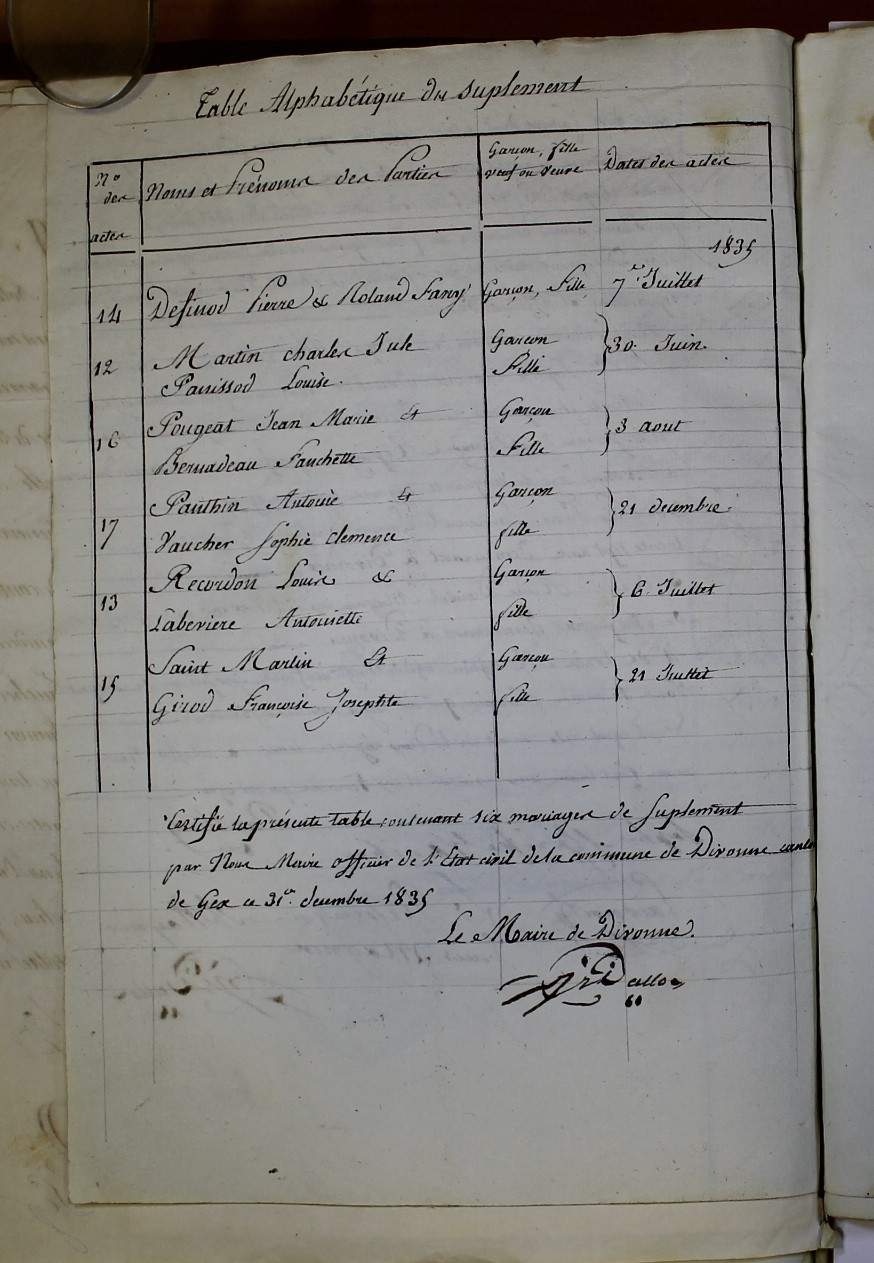 Table Alphabétique du suplement
N° des actes
Noms et Prénoms des Parties
Garçon, fille veuf ou veuve
Dates des actes
1835
14 Definod Pierre & Roland Fany Garçon, Fille 7e Juillet
12 Martin charles Jule Garçon
Panissod Louise. Fille } 30. Juin.
16 Pougeat Jean Marie et Garçon
Bernadeau Fanchette Fille } 3 aout
Panthin Antoine et Garçon
17 Vaucher Sophie clemence fille } 21 decembre.
Recordon Louis & Garçon
13 Laberiere Antoinette fille } 6. Juillet
Saint Martin Et Garçon
15 Girod Françoise Josephte fille } 21 Juillet
Certifié la présente table contenant six mariages de Suplement
par Nous Maire officier de l'Etat civil de la commune de Divonne
de Gex ce 31er. decembre 1835
Le Maire de Divonne.